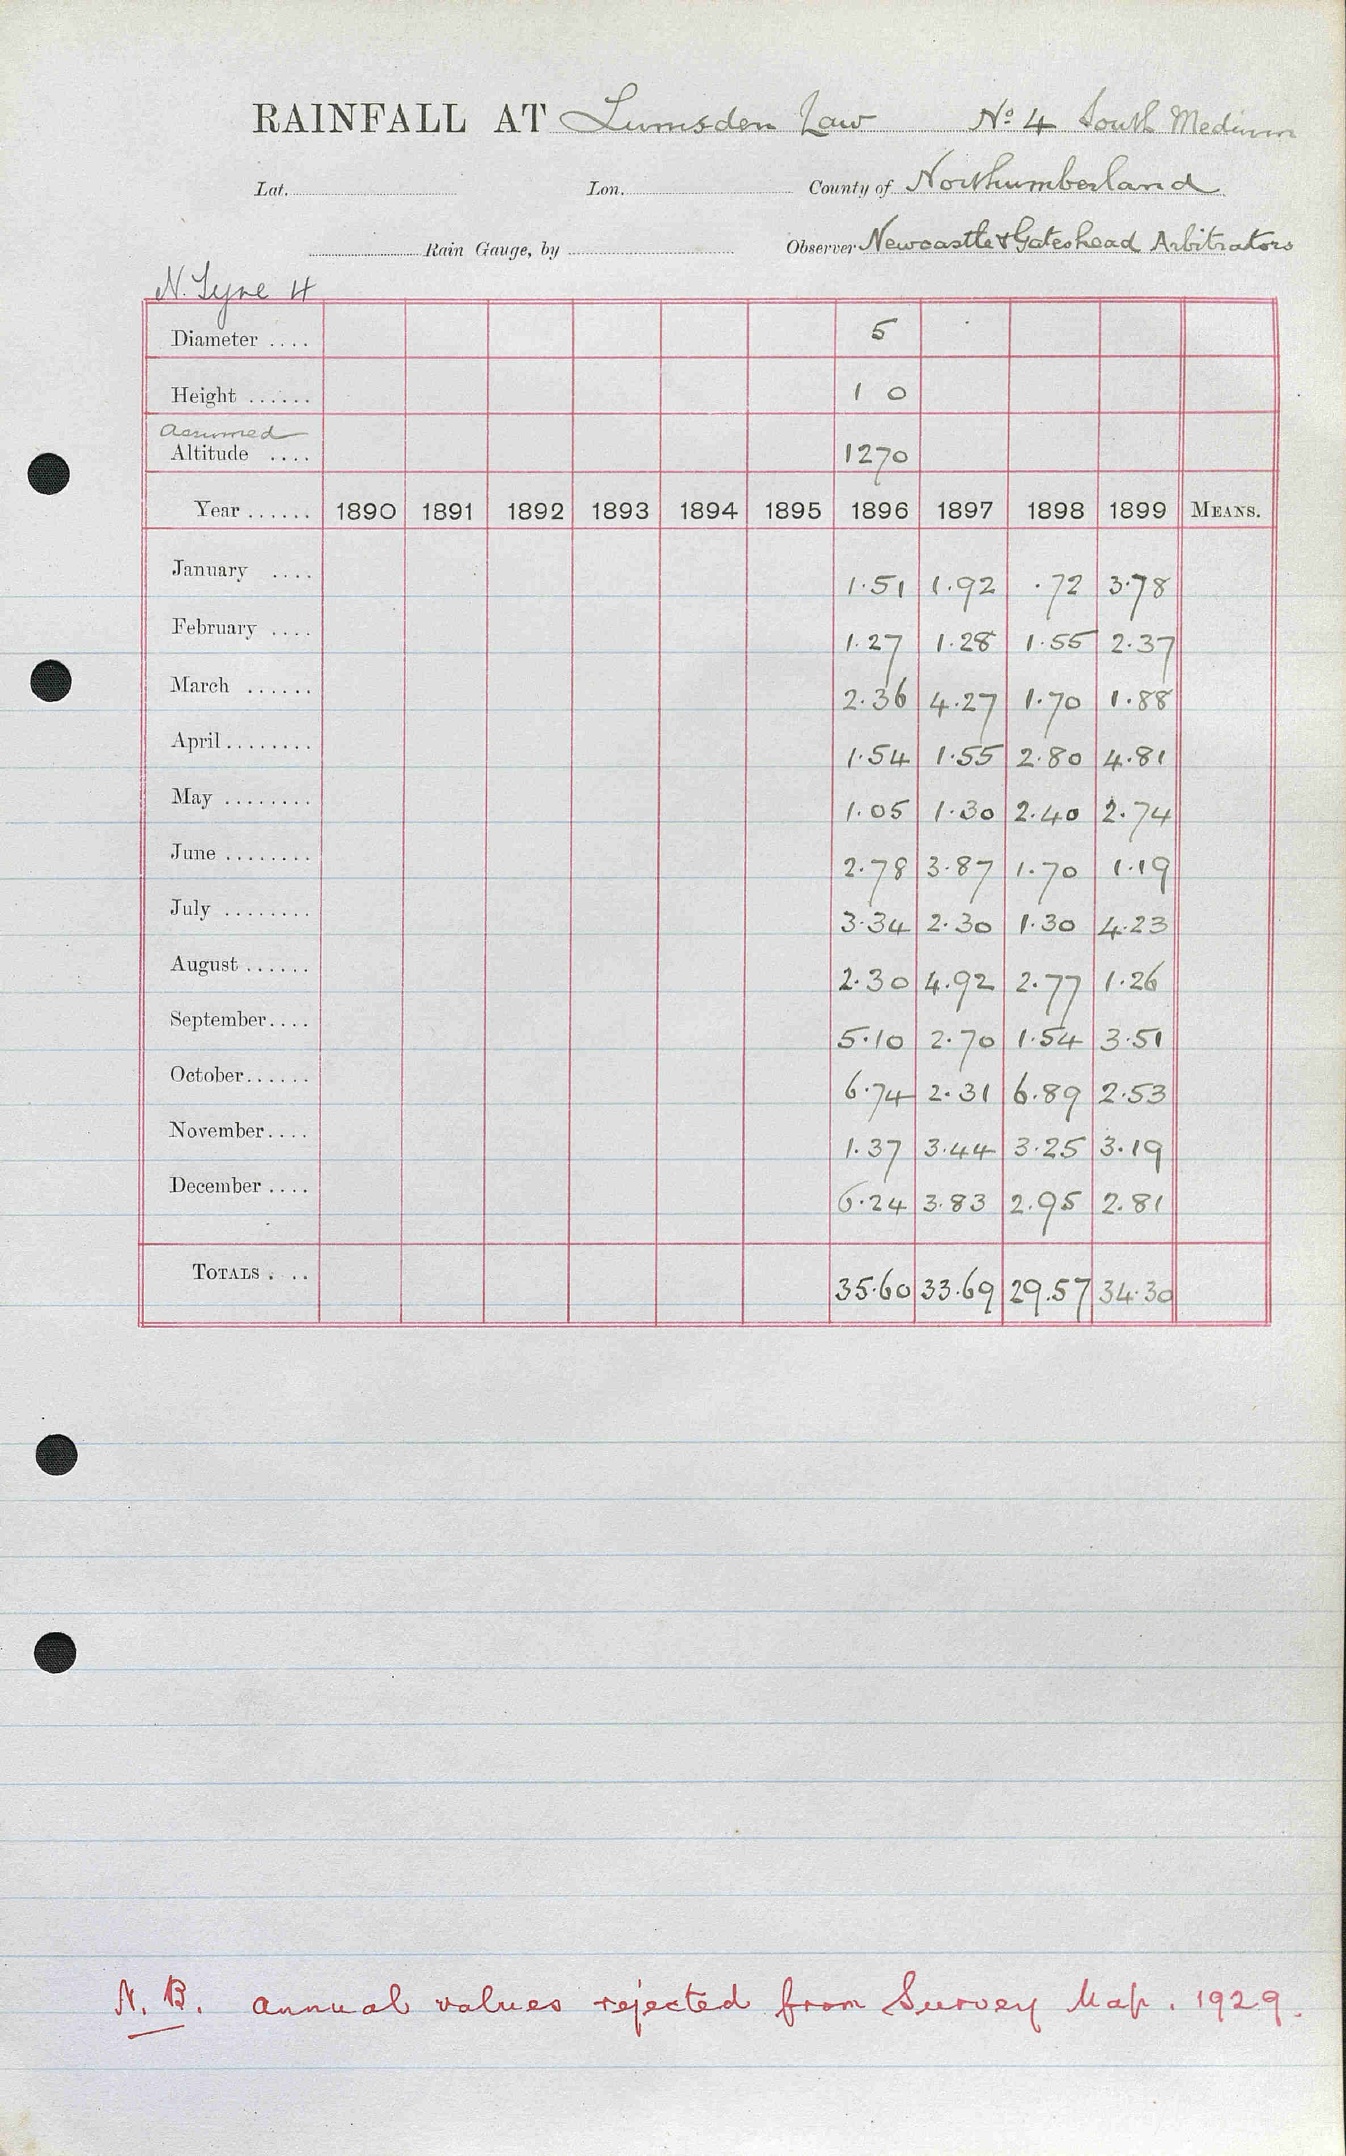 RAINFALL AT Lumsden Law No. 4 South Medium
Lat. Lon. County of Northumberland
Rain Gauge, by Observer Newcastle & Gateshead Arbitrators
N. Tyne 4
Diameter .... 5
Height ...... 1 0
assumed
Altitude .... 1270
Year ...... 1890 1891 1892 1893 1894 1895 1896 1897 1898 1899 MEANS.
January .... 1.51 1.92 .72 3.78
February .... 1.27 1.28 1.55 2.37
March ...... 2.36 4.27 1.70 1.88
April ........ 1.54 1.55 2.80 4.81
May ........ 1.05 1.30 2.40 2.74
June ........ 2.78 3.87 1.70 1.19
July ........ 3.34 2.30 1.30 4.23
August ...... 2.30 4.92 2.77 1.26
September .... 5.10 2.70 1.54 3.51
October ...... 6.74 2.31 6.89 2.53
November .... 1.37 3.44 3.25 3.19
December .... 6.24 3.83 2.95 2.81
TOTALS . .. 35.60 33.69 29.57 34.30
N. B. annual values rejected from Survey Map. 1929.